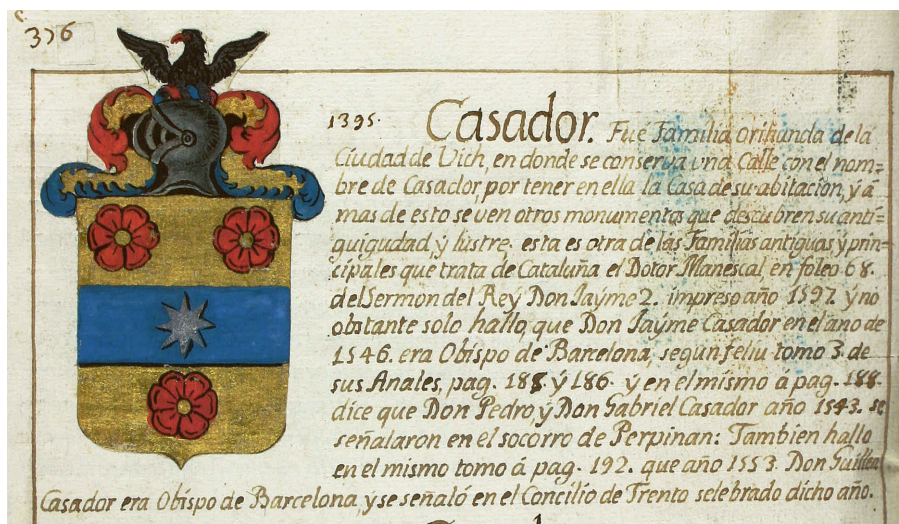 376
1395. Casador. Fué Familia orihunda de la
Ciudad de Vich, en donde se conserva una Calle con el nom=
bre de Casador, por tener en ella la Casa de su abitacion, ÿ á
mas de esto se ven otros monumentos que descubren su anti=
guigudad, ÿ lustre. esta es otra de las Familias antiguas ÿ prin=
cipales que trata de Cataluña el Dotor Manescal en foleo 68.
del Sermon del Reÿ Don Jaÿme 2. impreso año 1597. ÿ no
obstante solo hallo, que Don Jaÿme Casador en el año de
1546. era Obispo de Barcelona, segun feliu tomo 3. de
sus Anales, pag. 188 ÿ 186. ÿ en el mismo á pag. 188.
dice que Don Pedro, ÿ Don Gabriel Casador año 1543. se
señalaron en el socorro de Perpinan: Tambien hallo
en el mismo tomo á pag. 192. que año 1553. Don Guillen
Casador era Obispo de Barcelona, ÿ se señaló en el Concilio de Trento selebrado dicho año.